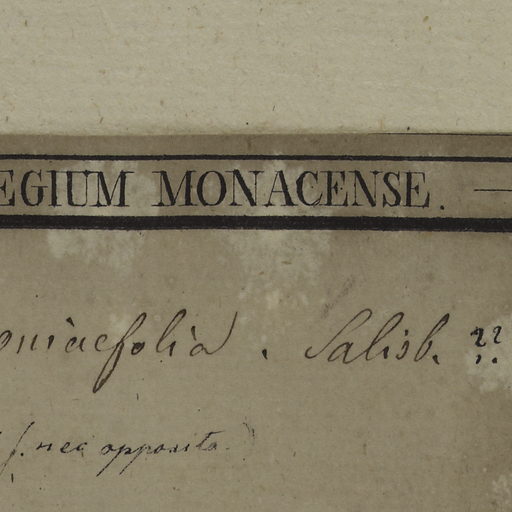 EGIUM MONACENSE. —
oniaefolia. Salisb. ??
f. nec opposita.)